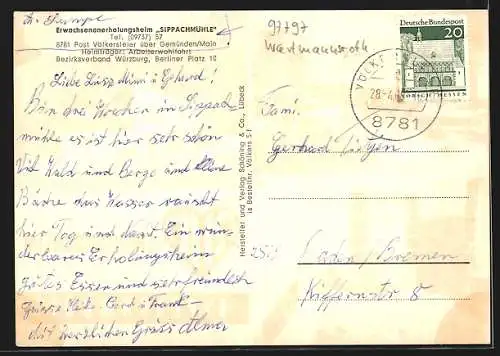 A. Kempe
Erwachsenenerholungsheim „SIPPACHMÜHLE"
Tel. (09737) 57
8781 Post Völkersleier über Gemünden/Main
Heimträger: Arbeiterwohlfahrt
Bezirksverband Würzburg, Berliner Platz 10
Liebe Luise Mimi u Gerhard!
Bin drei Wochen in Sippach
mühle es ist hier sehr schön
Viel Wald und Berge und kleine
Bäche das Wasser rauscht
hier Tag und Nacht. Ein wun
derbares Erholungsheim
gutes Essen und sehr freundlich
Grüsse Heike Gerd u Frank
die herzlichen Grüsse Alma
Hersteller und Verlag Schöning & Co., Lübeck
Bestellnr. Völkers 5 f
97797
Wartmannsroth
Deutsche Bundespost
20
8781
Fami.
Gerhard
Bremen
8